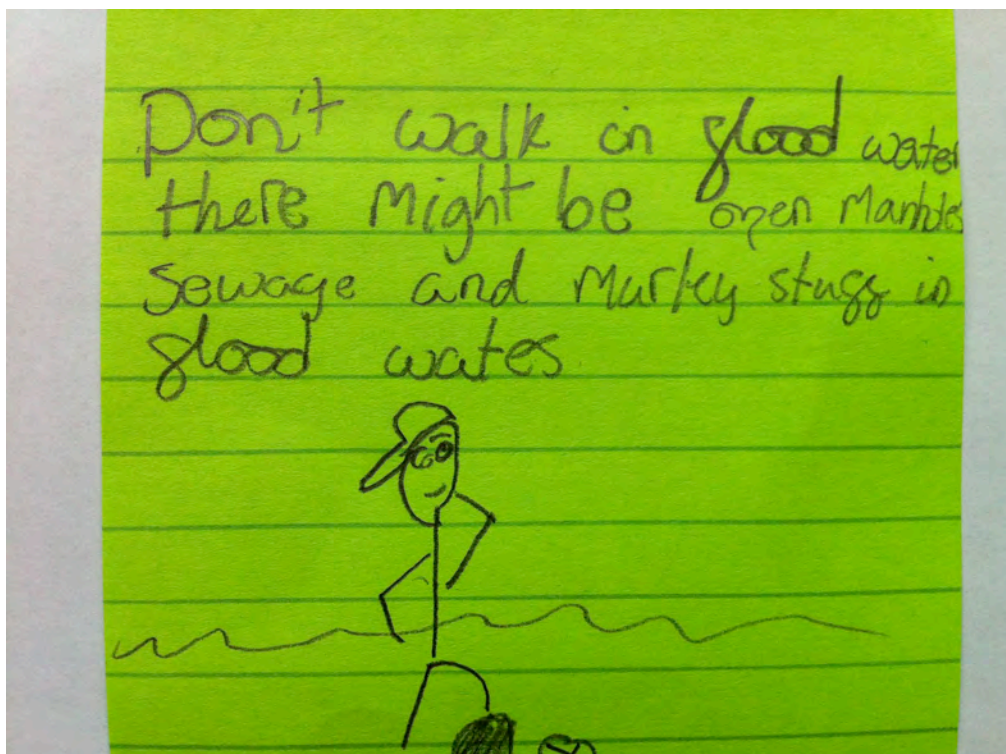 Don't walk in flood water
there might be open Manholes
sewage and Murkey stuff in
flood wates